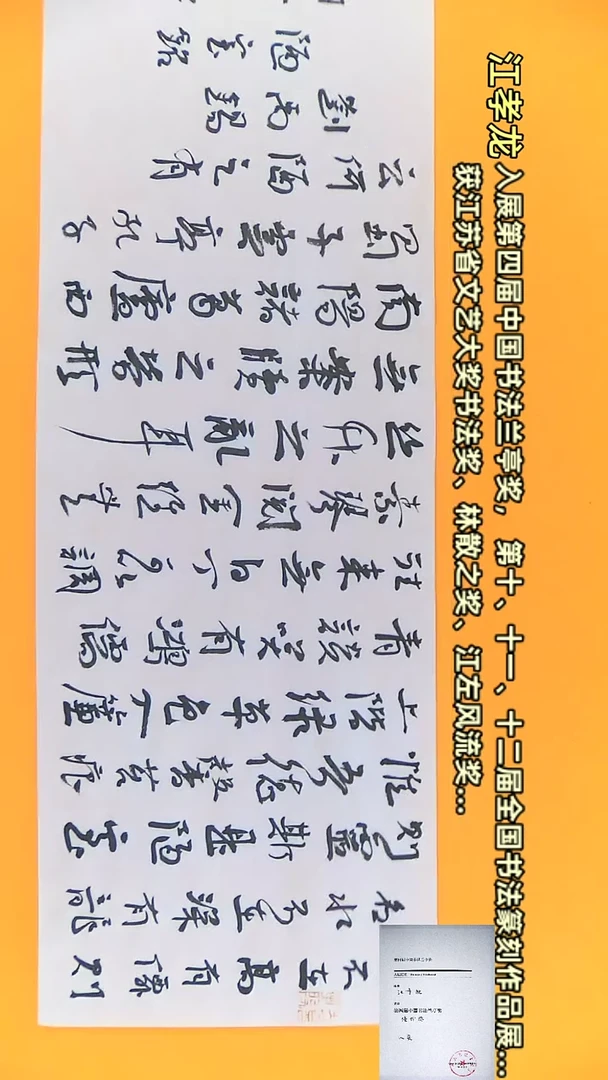 江孝龙 入展第四届中国书法兰亭奖，第十、十一、十二届全国书法篆刻作品展...
获江苏省文艺大奖书法奖、林散之奖、江左风流奖...
不在高有僊则
名水不在深有龍
则靈斯是陋室
惟吾德馨苔痕
上階绿草色入簾
青談笑有鴻儒
往来無白丁可以調
素琴閲金經無
丝竹之亂耳
無案牘之勞形
南陽諸葛廬西
蜀子雲亭孔子
云何陋之有
劉禹錫
陋室銘